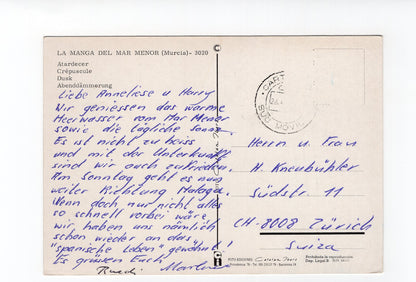 LA MANGA DEL MAR MENOR (Murcia)- 3020
Atardecer
Crépuscole
Dusk
Abenddämmerung
Liebe Anneliese u Harry
Wir geniessen das warme
Meerwasser vom Mar Menor
sowie die tägliche Sonne.
Es ist nicht zu heiss
und mit der Unterkunft
sind wir auch zufrieden.
Am Sonntag geht es nun
weiter Richtung Malaga.
Wenn doch nur nicht alles
so schnell vorbei wäre,
wir haben uns nämlich
schon wieder an das
"spanische Leben" gewöhnt!
Es grüssen Euch
Ruedi
Herrn u. Frau
H. Kneubühler
Südstr. 11
CH-8008 Zürich
Suiza
Prohibida la reproducción